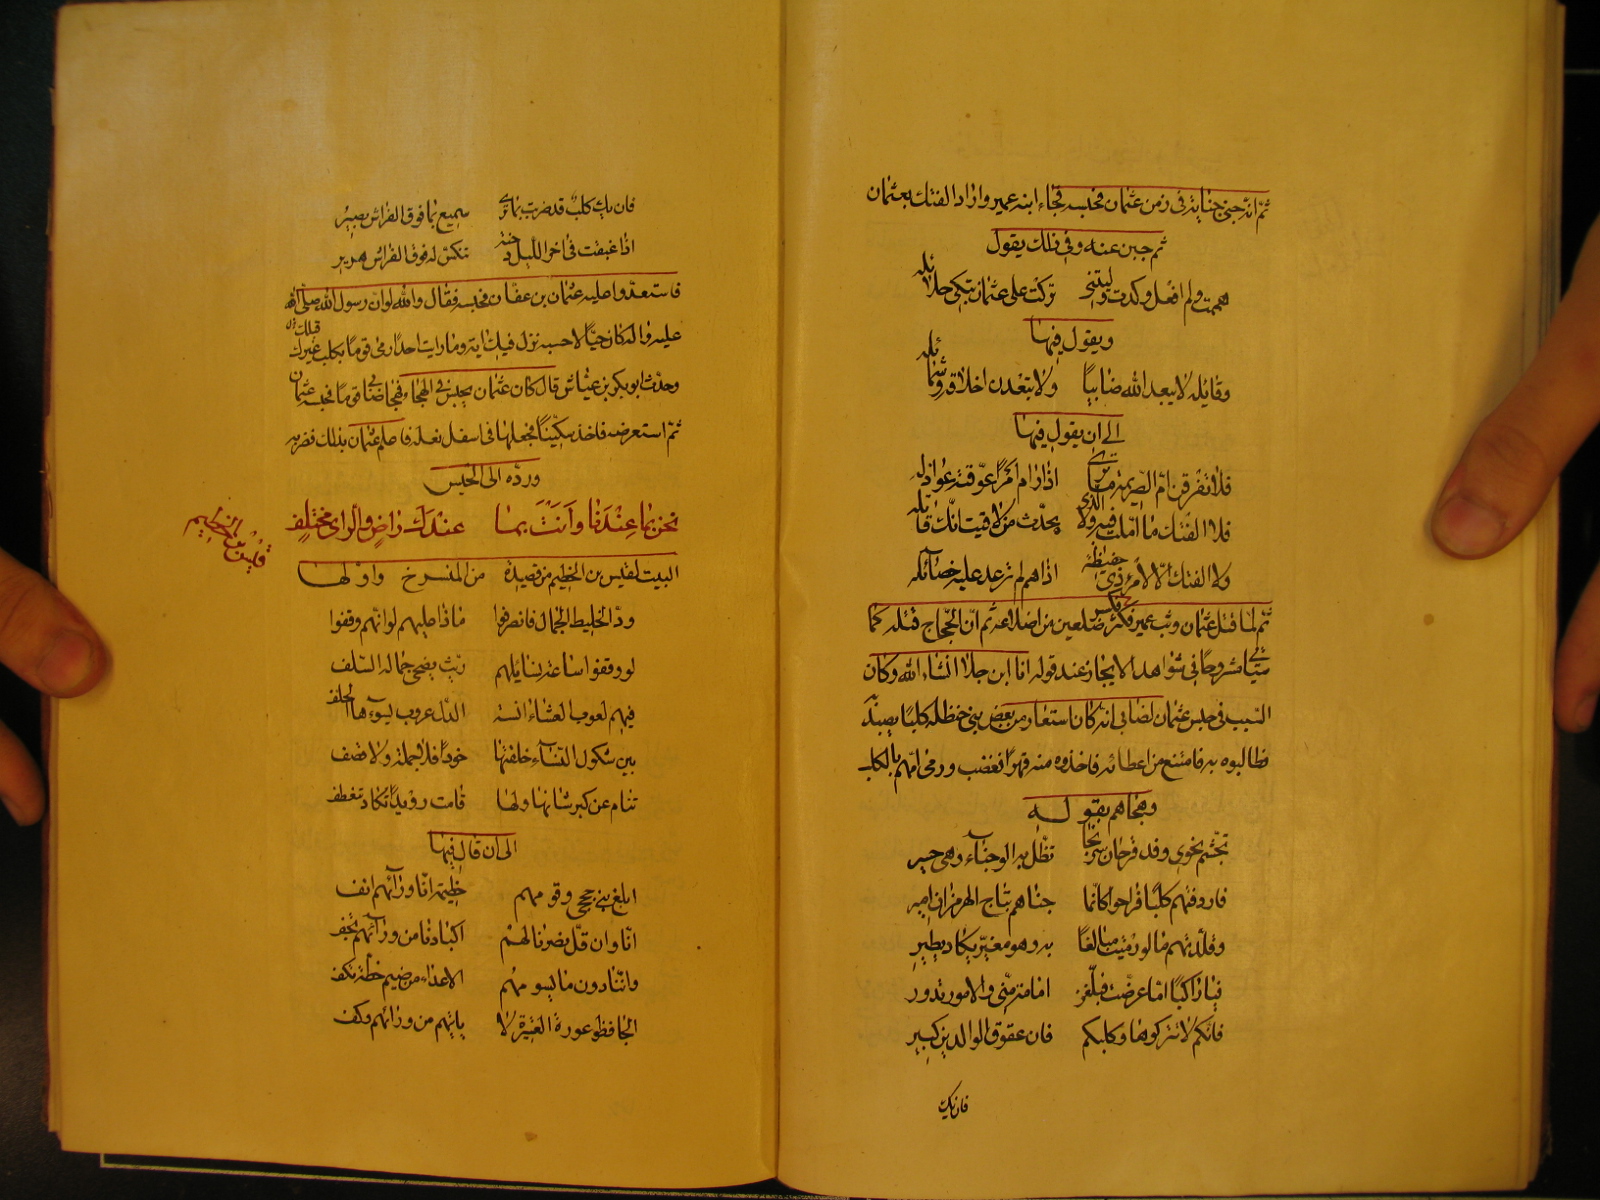 ثم انه جنى جناية فى زمن عثمان فحبسه فجاء ابنه عمير واراد الفتك بعثمان
ثم جبن عنه وفى ذلك يقول
هممت ولم افعل وكدت وليتنى تركت على عثمان تبكى حلائله
ويقول فيها
وقايلة لا يبعد الله ضابيا ولا تبعدن اخلاقه وشمائله
الى ان يقول فيها
اذا رام امرا عوقته عواذله
فلا الفتك ما امّلت فيه ولا الذى يحدّث من لاقيت انك قاتله
وما الفتك الّا لأمرئ ذى حفيظة اذا هم لم ترعد عليه خصائله
ثم لما قتل عثمان وثب عمير فكسر ضلعين من اضلاعه ثم ان الحجاج قتله كما
سيأتى مشروحا فى شواهد الايجاز عند قوله انا ابن جلا انشاء الله وكان
السبب فى حبس عثمان لضابى انه كان استعار من بعض بنى حنظلة كلبا يصيد به
فطالبوه به فامتنع من اعطائه فاخذوه منه قهرا فغضب ورمى امّهم بالكلب
وهجاهم بقوله
تجشم نحوى وفد قرحان تظل به الوجناء وهى حسير
فاردفتهم كلبا فراحوا كانما حباهم بتاج الهرمزان امير
وقلدتهم ما لو رميت متالعا به وهو مغبرّ يكاد يطير
فيا راكبا اما عرضت فبلّغن امامة منّى والامور تدور
فانكم لا تتركوها وكلبكم فان عقوق الوالدين كبير
فان يك
فان يك كلب قد ضريت بما ترى سميع بما فوق الفراش بصير
اذا عبقت فى اخر الليل دخنة تنكس له فوق الفراش هرير
فاستعدوا عليه عثمان بن عفان فحبسه فقال والله لو ان رسول الله صلى الله
عليه واله كان حيا لاحسبه نزل فيك اية وما رايت احدا رمى قوما بكلب غيرك قبلك
وحدث ابو بكر بن عياش قال كان عثمان يحبس فى الهجاء فهجا ضابى قوما فحبسه عثمان
ثم استعرضه فاخذ سكينا فجعلها فى اسفل نعله فاعلم عثمان بذلك فضربه
وردّه الى الحبس
نحن بما عندنا وانت بما عندك راض والراى مختلف
قيس بن الخطيم
البيت لقيس بن الخطيم من قصيدة من المنسرح واولها
ردّ الخليط الجمال فانصرفوا ماذا عليهم لو انهم وقفوا
لو وقفوا ساعة نسائلهم ريث يضحى جماله السلف
فيهم لعوب العشاء انسة الدلّ عروب يسوءها الخلف
بين شكول النساء خلقتها قصدا فلا جبلة ولا قضف
تنام عن كبر شانها ولها قامت رويدا تكاد تنغطف
الى ان قال فيها
ابلغ بنى جحجبى وقومهم خطمة انّا وراءهم انف
انّا وان قلّ نصرنا لهم اكبادنا من ورائهم تجف
واننا دون ما يسومهم الاعداء من ضيم خطّة نكف
الحافظو عورة العشيرة لا ياتيهم من ورائهم وكف